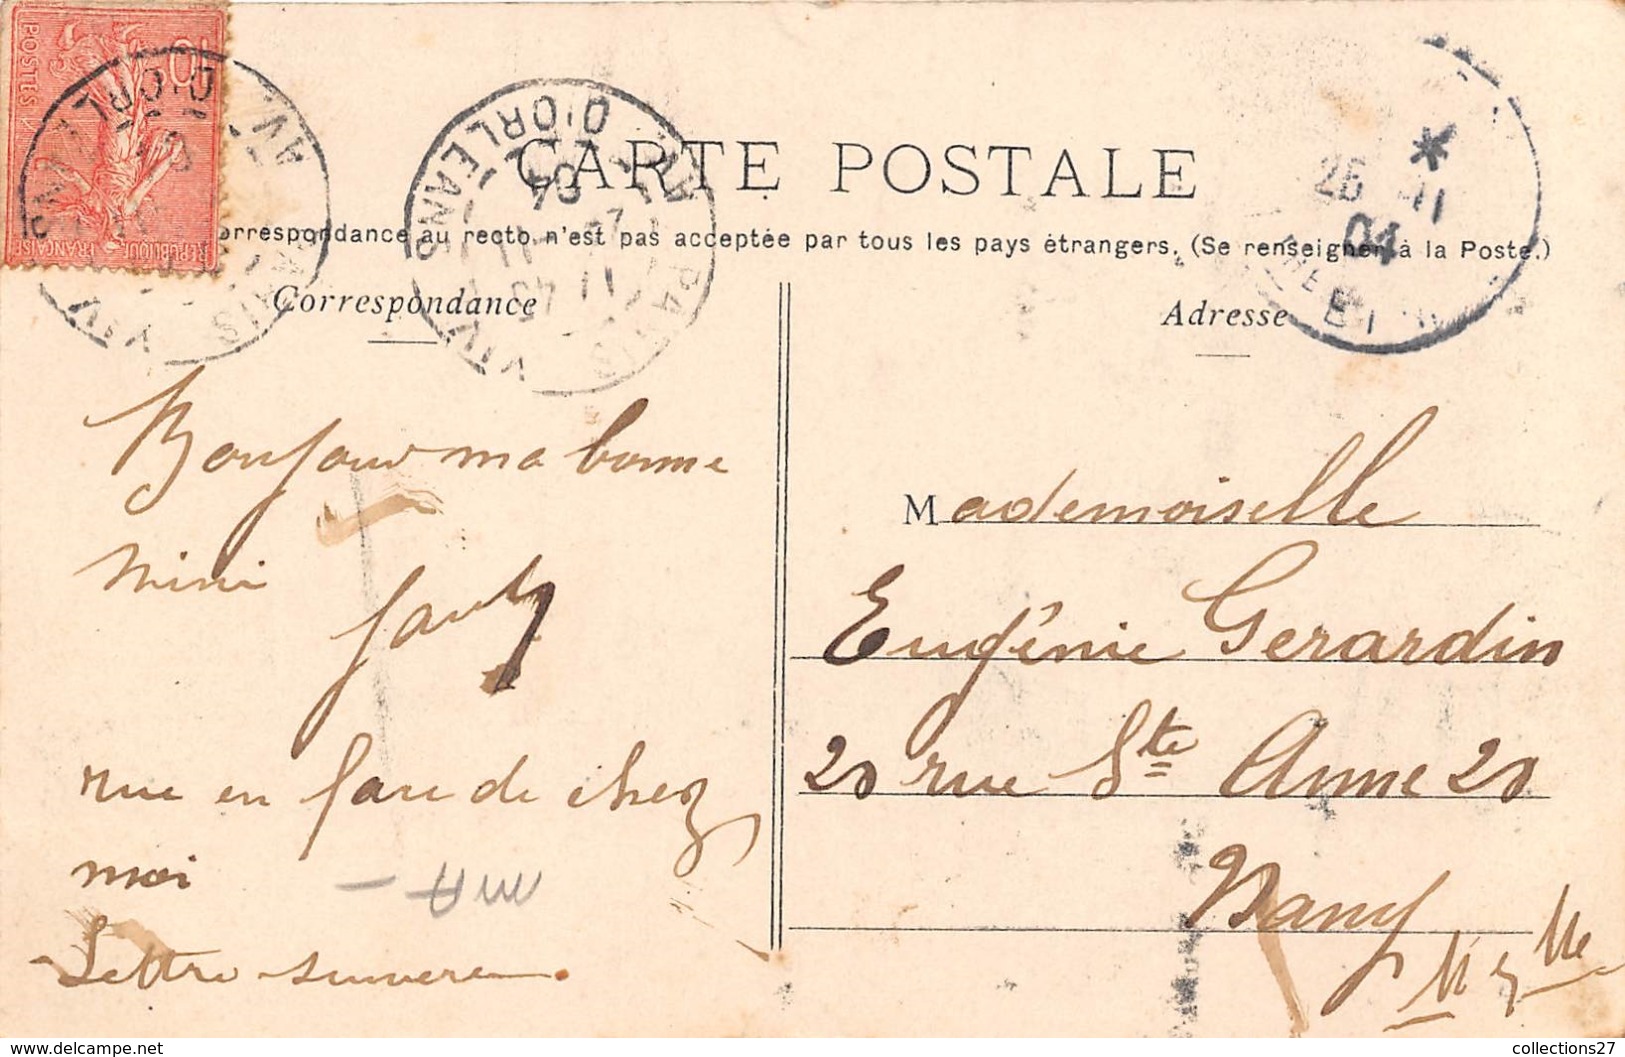 10
POSTES
REPUBLIQUE FRANÇAISE
PARIS XIV
AV. D'ORLEANS
PARIS XIV
AV. D'ORLEANS
04
CARTE POSTALE
26 11
04
orrespondance au recto n'est pas acceptée par tous les pays étrangers. (Se renseigner à la Poste.)
Correspondance
Adresse
Bonjour ma bonne
Mini
rue en face de chez
moi
Lettre suivera
Mademoiselle
Eugénie Gerardin
20 rue Ste Anne 20
Nancy
M & Mlle
collections27